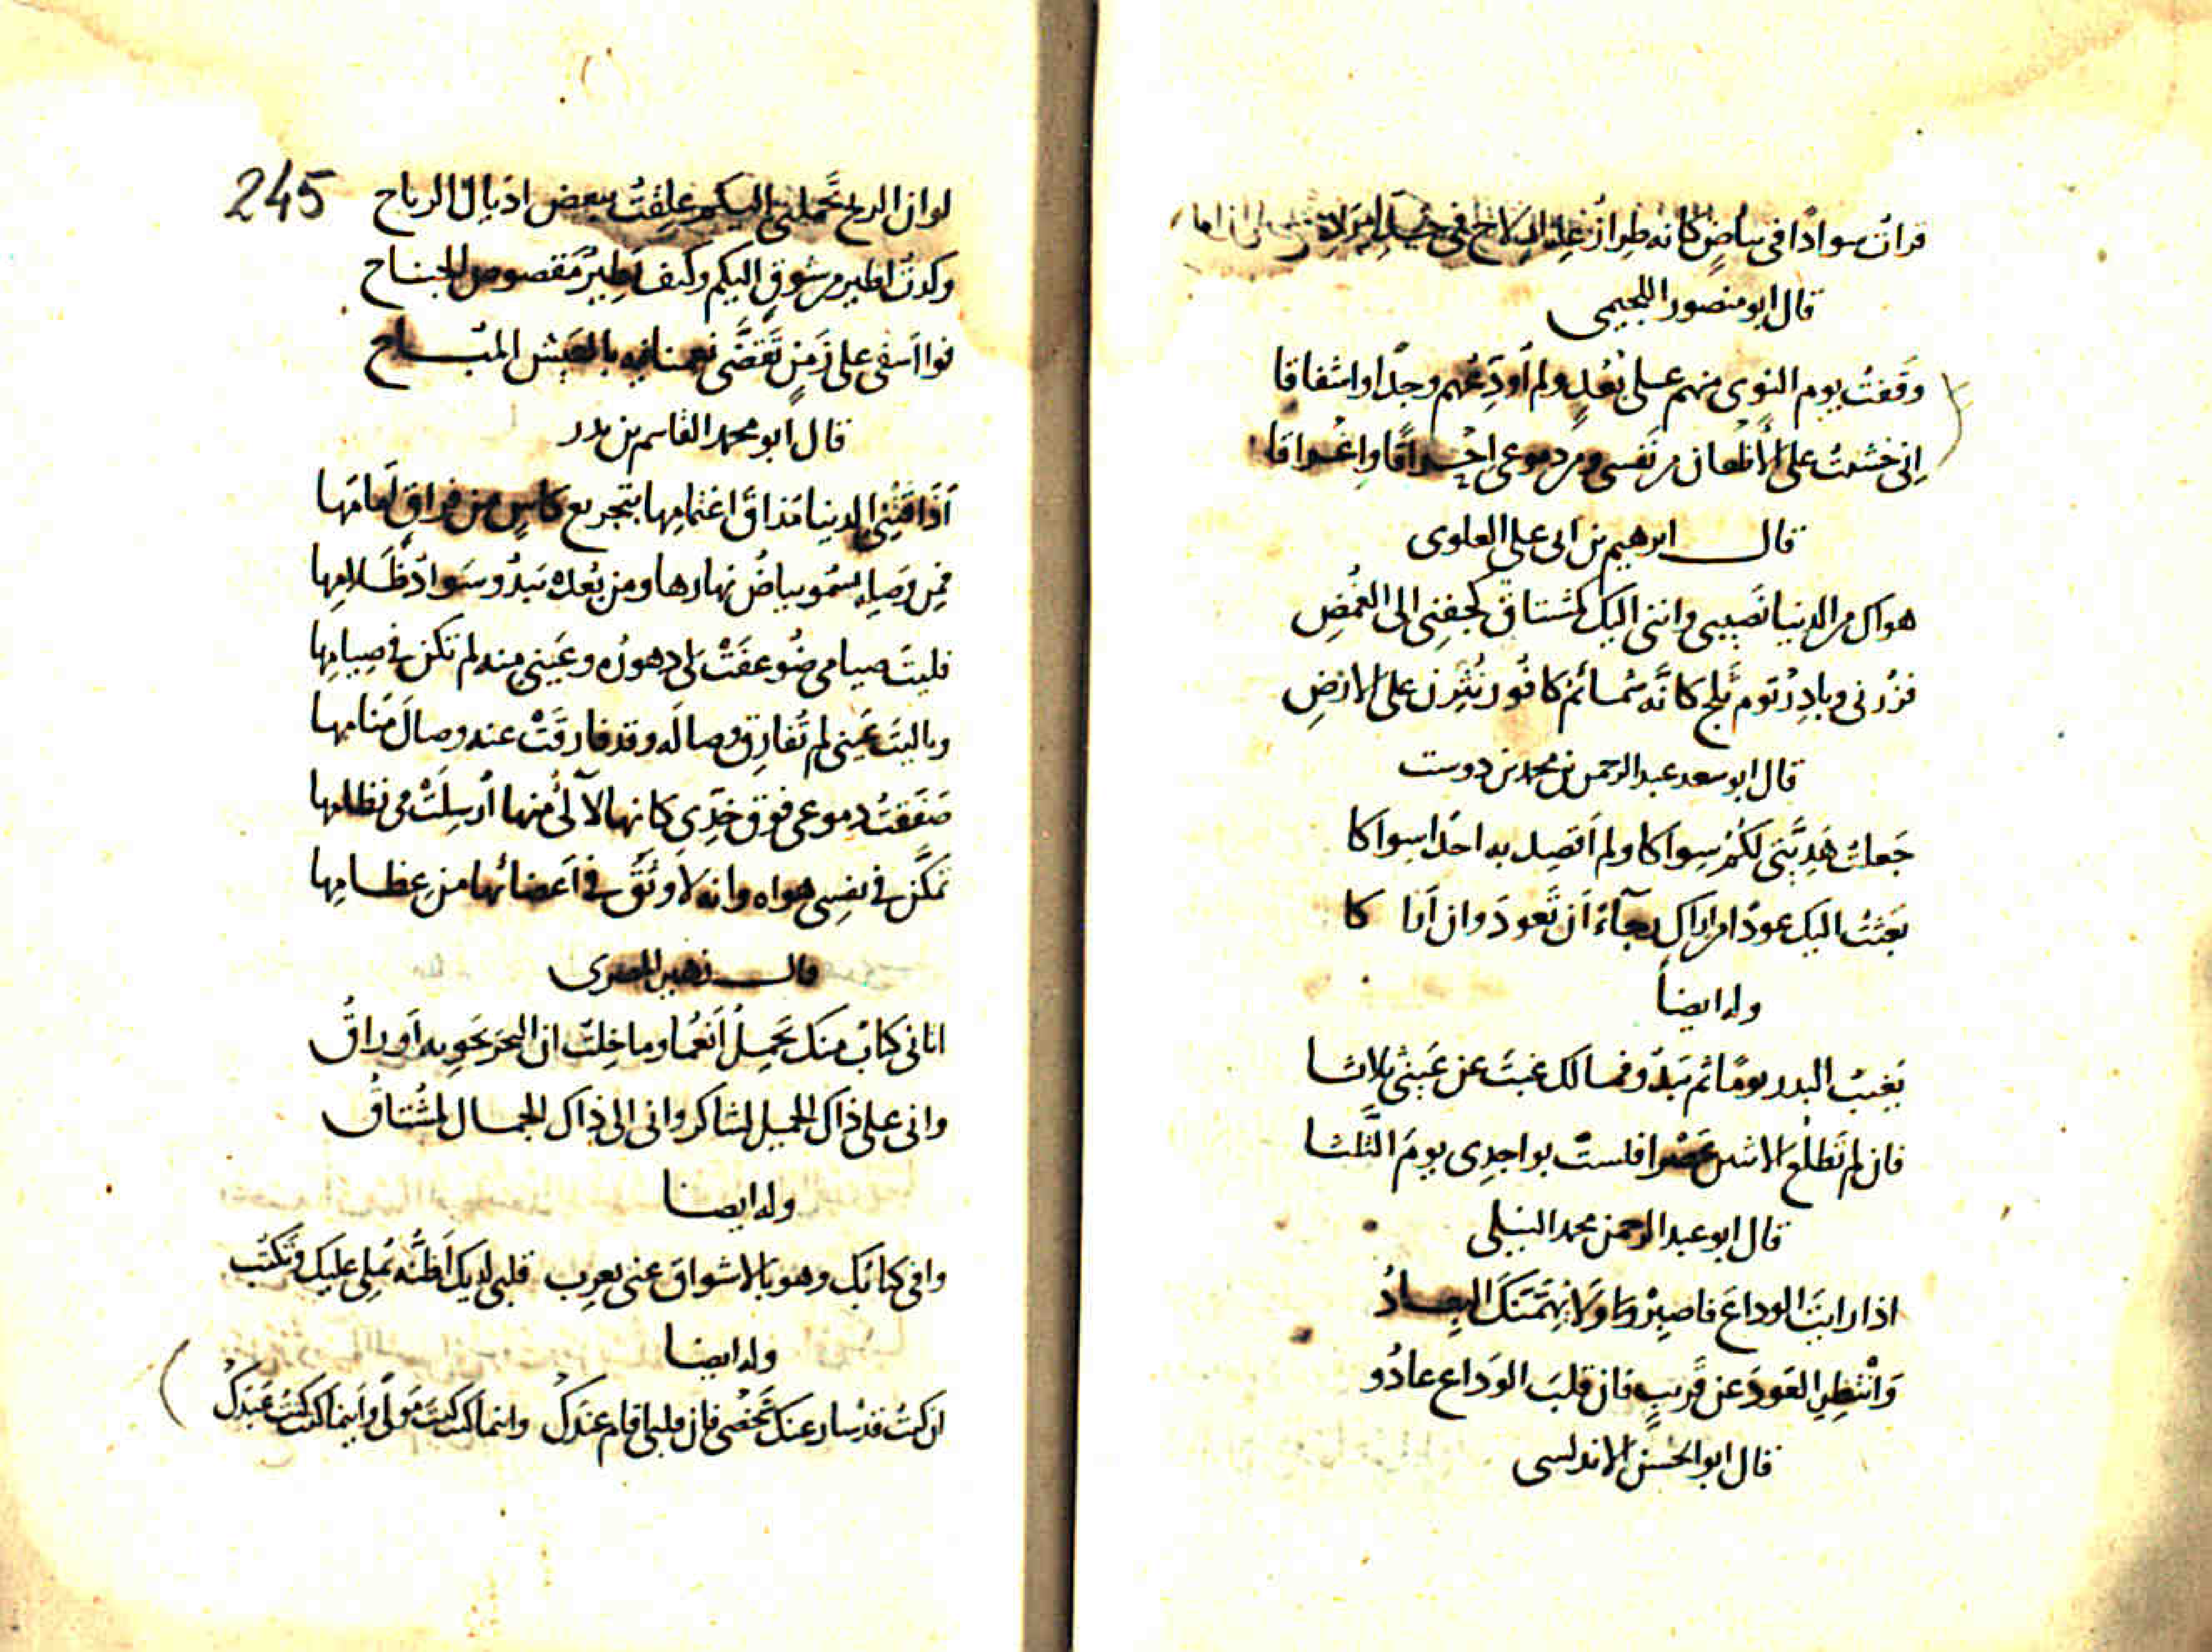 قرات سوادا فى بياضٍ كانه طراز
قال ابو منصور اللجيمى
وَقَفتُ يوم النوى منهم على بُعُدٍ ولم أُودِّعهم وجدًا واشفاقا
اِنى خشيتُ على الأظعان من نَفَسى ومن دموعى احراقًا واغراقا
قال ابرهيم بن ابى على العلوى
هواك من الدنيا نَصيبى واننى اليك لمشتاقٌ كجفنى الى الغُمضِ
فزُرنى وبادِرْ يَوم ثَلج كانَّه شمائم كافُورٍ نُثِرن على الارضِ
قال ابو سعد عبد الرحمن بن محمد بن دوست
جَعلت هَدِيَّتى لكُمُ سِواكا ولم اَقصِد به احدًا سواكا
بَعَثتُ اليك عودًا من اراكٍ رجآءَ اَن تَعودَ وان اَراكا
وله ايضاً
يَغيبُ البدر يومًا ثم يَبدُو فما لك غبتَ عن عَينى ثلاثا
فان لم تَطلُعِ الاثنين عصرًا فلستَ بواجِدى يومَ الثَّلثا
قال ابو عبد الرحمن محمد النيلى
اذا رايتَ الوداعَ فاصبِرْ ولا يُهِمَّنَكَ البِعادُ
وَانْتظِرِ العَودَ عن قَريبٍ فان قلبَ الوَداع عادُو
قال ابو الحسن الاندلسى
245
لو ان الريح تحملنى اليكم عَلِقتُ ببعض اذيال الرياح
وكدت اطير من شوقٍ اليكم وكيف يَطيرُ مقصوص الجناح
فوا اَسفى على زَمنٍ تَقضَّى نعمنا فيه بالعيش المتاح
قال ابو محمد القاسم بن بدر
اَذاقَتْنِى الدنيا مَذاقَ اغتمامِها بتجريع كاسٍ من فراقِ اَمامَها
فمِن وَصلِه يسمُو بياضُ نهارها ومن بُعده يَبدُو سَوادُ ظَلامِها
فليتَ صيامى ضُوعفَتْ لى دهورُه وعَينىَ منه لم تكن فى صِيامِها
وياليتَ عَينى لم تُفارِق وصالَه وقد فارقَتْ عنه وِصالَ مَنامِها
دموعى فوق خَدِّى كانها لآلئُ منها اُرسِلَتْ من نظامِها
تمكَّن فى نفسى هواه وانه لاَوثَقُ فى اَعضائها من عظامِها
قال زهير المصرى
اتانى كتابٌ منك يَحمِلُ اَنعُمًا وما خِلتُ ان البحرَ تحويه اَوراقُ
وانى على ذاك الجميل لشاكر وانى الى ذاك الجمال لمُشتاقُ
وله ايضا
وافى كتابُك وهو بالاشواق عنى يعرِب قلبى لديك اَظنُّه يُملى عليكَ وتكتُب
وله ايضا
ان كنتُ قد سار عنك شَخصى فان قلبى اقام عندك واينما كنتَ كنتَ مَولًى واَينما كنتُ كنتُ عَبدكْ